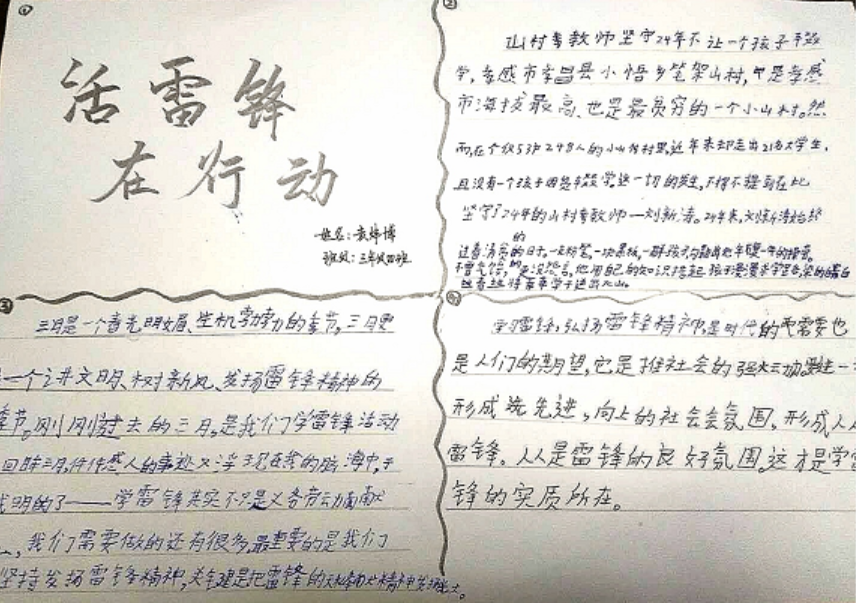 ①
活雷锋
在行动
姓名：袁
班级：三年级四班
②
山村老教师坚守24年不让一个孩子
学，孝感市孝昌县小悟乡笔架山村，是孝感
市海拔最高、也是最贫穷的一个小山村。然
而，在个仅53户248人的小山村里，近年来却走出21名大学生，
且没有一个孩子因贫辍学。这一切的发生，不得不提到在此
坚守了24年的山村老教师—刘新涛。24年来，刘新涛始终
过着清贫的日子。一支粉笔，一块黑板，一群孩子
没怨言，他用自己的知识
③
三月是一个春光明媚、生机勃勃的季节。三月更
一个讲文明、树新风、发扬雷锋精神的
季节。刚刚过去的三月，是我们学雷锋活动
回眸三月，件件感人的事迹又浮现在我的脑海中，
明的了——学雷锋其实不只是义务劳动
我们需要做的还有很多，最重要的是我们
坚持发扬雷锋精神，关键是把雷锋的
④
学习雷锋，弘扬雷锋精神，是时代的需要也
是人们的期望，它是推社会的强大动
形成 先进，向上的社会会氛围，形成人人
雷锋。人人是雷锋的良好氛围。这才是学雷
锋的实质所在。